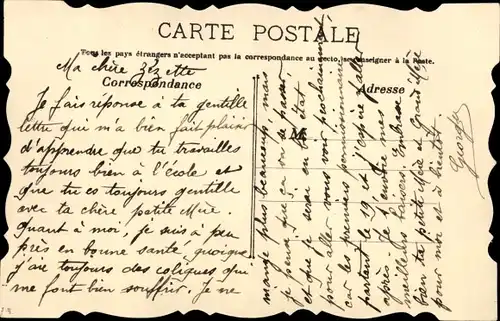 CARTE POSTALE
Tous les pays étrangers n'acceptant pas la correspondance au recto, se renseigner à la Poste.
Correspondance
Adresse
Ma chère Zézette
Je fais réponse à ta gentille
lettre qui m'a bien fait plaisir
d'apprendre que tu travailles
toujours bien à l'école et
que tu es toujours gentille
avec ta chère petite Mère.
Quant à moi, je suis à peu
près en bonne santé, quoique
j'aie toujours des coliques qui
me font bien souffrir. Je ne
mange plus beaucoup, mais
je pense que ça va se passer,
et que je serai en bon état
pour aller vous voir prochainement
car les premiers permissionnaires
partent le 19 et j'espère aller
après. Je t'envoie mes
meilleurs baisers. Embrasse
bien ta petite Mère et Grand Mère
pour moi et à bientôt.
Georges